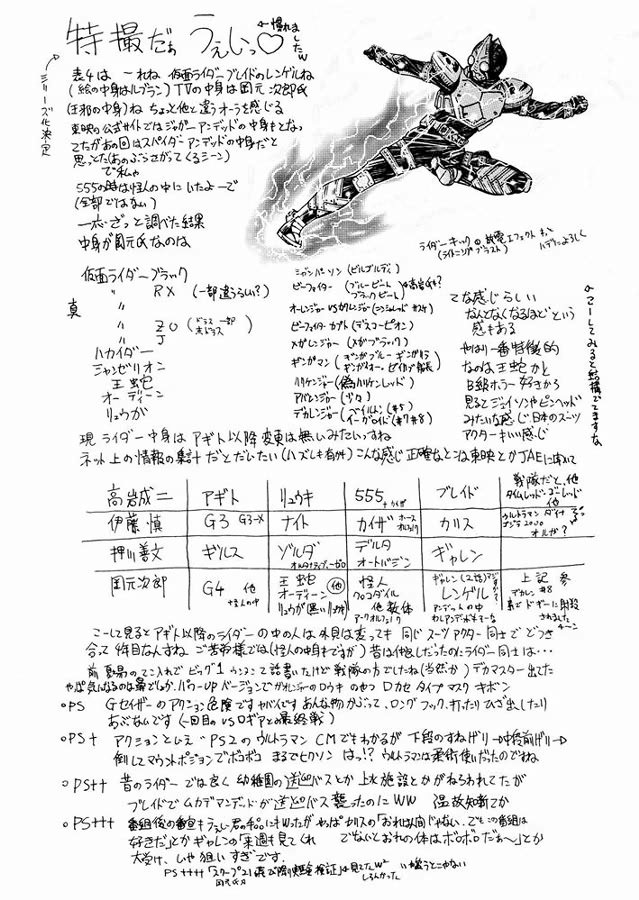 特撮だぁ うぇいっ♡
←慣れましたw
シリーズ化決定
表4は これね 仮面ライダーブレイドのレンゲルね
(絵の中身はルブラン) TVの中身は岡元次郎氏
(王邪の中身)ね ちょっと他と違うオーラを感じる
東映の公式サイトではジャガーアンデッドの中身もとなっ
てたがあの回はスパイダーアンデッドの中身だと
思っとた(あのぶらさがてくるシーン)
で私ゃ
555の時は怪人の中にいたよーで
(全部ではない)
一応ざっと調べた結果
中身が岡元氏なのは
ライダーキックの放電エフェクト
(ライトニングブラスト) ハデによろしく
仮面ライダーブラック
〃 RX (一部違うらしい?)
真
〃 ZO
〃 J
ハカイダー
シャンゼリオン
王蛇
オーディーン
リュウガ
ジャンパーソン (ビルゴルディ)
ビーファイター (ブルービート ブラックビート)
オーレンジャーVSカクレンジャー(ニンジャレッド
ビーファイターカブト (デスコーピオン)
メガレンジャー (メガブラック)
ギンガマン (ギンガブルー ギンガ
ハリケンジャー (偽ハリケンレッド)
アバレンジャー (少々)
デカレンジャー
てな感じらしい
なんとなくなるほどという
感もある
やはり一番特徴的
なのは王蛇かと
B級ホラー好きから
見るとジェイソンやピンヘッド
みたいな感じ 日本のスーツ
アクターもいい感じ
こーしてみると結構でてますな
現ライダー中身はアギト以降変更は無いみたいっすね
ネット上の情報の集計だとだいたい(ハズレも有ゆ)こんな感じ 正確なとこは東映とかJAEにきいて
高岩成二 アギト リュウキ 555 ブレイド 戦隊だと、他 タイムレンジャーレッド 他
伊藤慎 G3 G3-X ナイト カイザ ホースオルフェノク カリス ウルトラマンダイナ ゴジラ2000 オルガ?
押川善文 ギルス ゾルダ オルタナティブ・ゼロ デルタ オートバジン ギャレン
岡元次郎 G4 他 怪人の中 王蛇 オーディーン リュウガ(黒いリュウキ) 他 怪人 クロコダイル 他数体 アークオルフェノク レンゲル アンデッドの中 上記参 デカレン#8
こーして見るとアギト以降のライダーの中の人は外見は変っても同じスーツアクター同士でどつき
合って4年目なんすね ご苦労様では(怪人の中身もですが) 昔は仲良しだったのにライダー同士は…
前 夏場のてこ入れでビッグ1ウンヌンて話書いたけど戦隊の方でしたね(当然か) デカマスター出てた
やっぱ気になるのは
○PS Gセイザーのアクション危険です ヤバイです あんな物かぶって、ロングフック、打ったりひざ出したり
あぶないです (一回目のVSロギアとの最終戦)
○PS+ アクションといえばPS2のウルトラマンCMでもわかるが 下段のすねげり→中段前げり→
倒してマウントポジションでボコボコ まるでヒクソン はっ!? ウルトラマンは柔術使いだったのでね
○PS++ 昔のライダーでは良く幼稚園の送迎バスとか上水施設とかがねらわれてたが
ブレイドでムカデアンデッドが送迎バス襲ったのにWW 温故知新てか
○PS+++ 番組後の番宣もうえい君の
好きだ」とかギャレンの「来週も見てくれ でないとおれの体はボロボロだぁ〜」とか
大受け、いや狙いすぎです。
PS++++